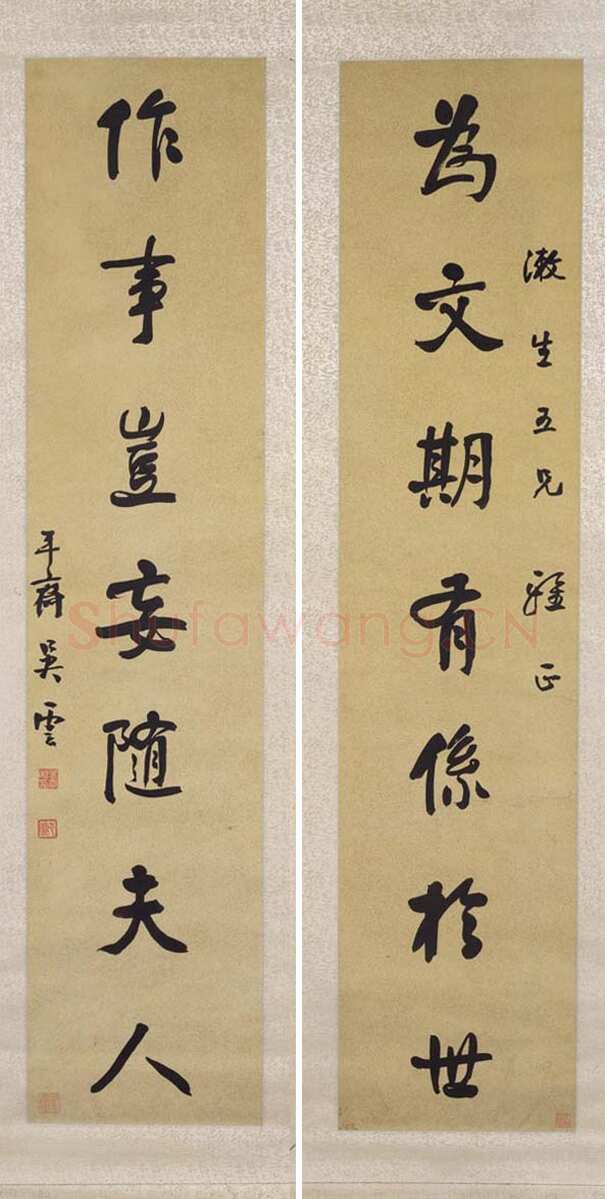 為文期有係於世
漱生五兄 雅正
作事豈妄隨夫人
平齋吳雲
Shufawang.CN